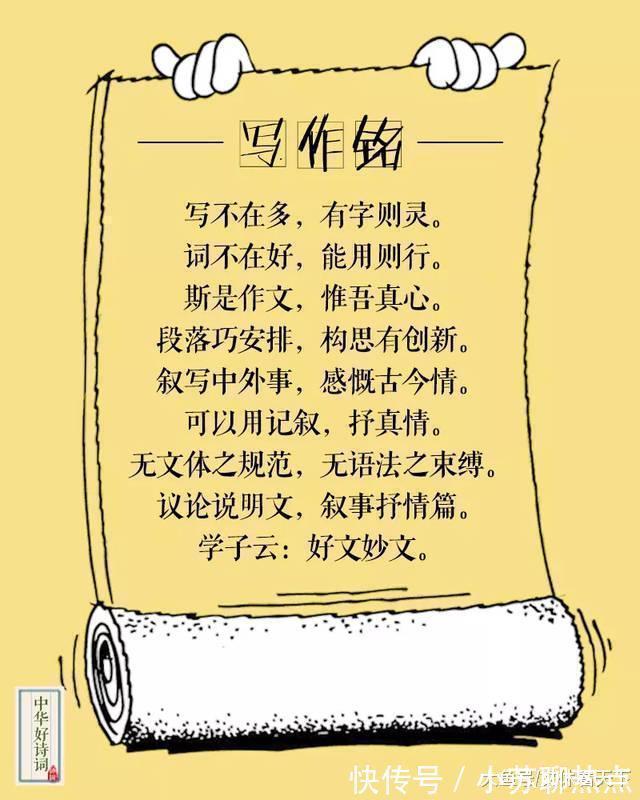 写作铭
写不在多，有字则灵。
词不在好，能用则行。
斯是作文，惟吾真心。
段落巧安排，构思有创新。
叙写中外事，感慨古今情。
可以用记叙，抒真情。
无文体之规范，无语法之束缚。
议论说明文，叙事抒情篇。
学子云：好文妙文。
中华好诗词
快传号 / 小苏聊热点